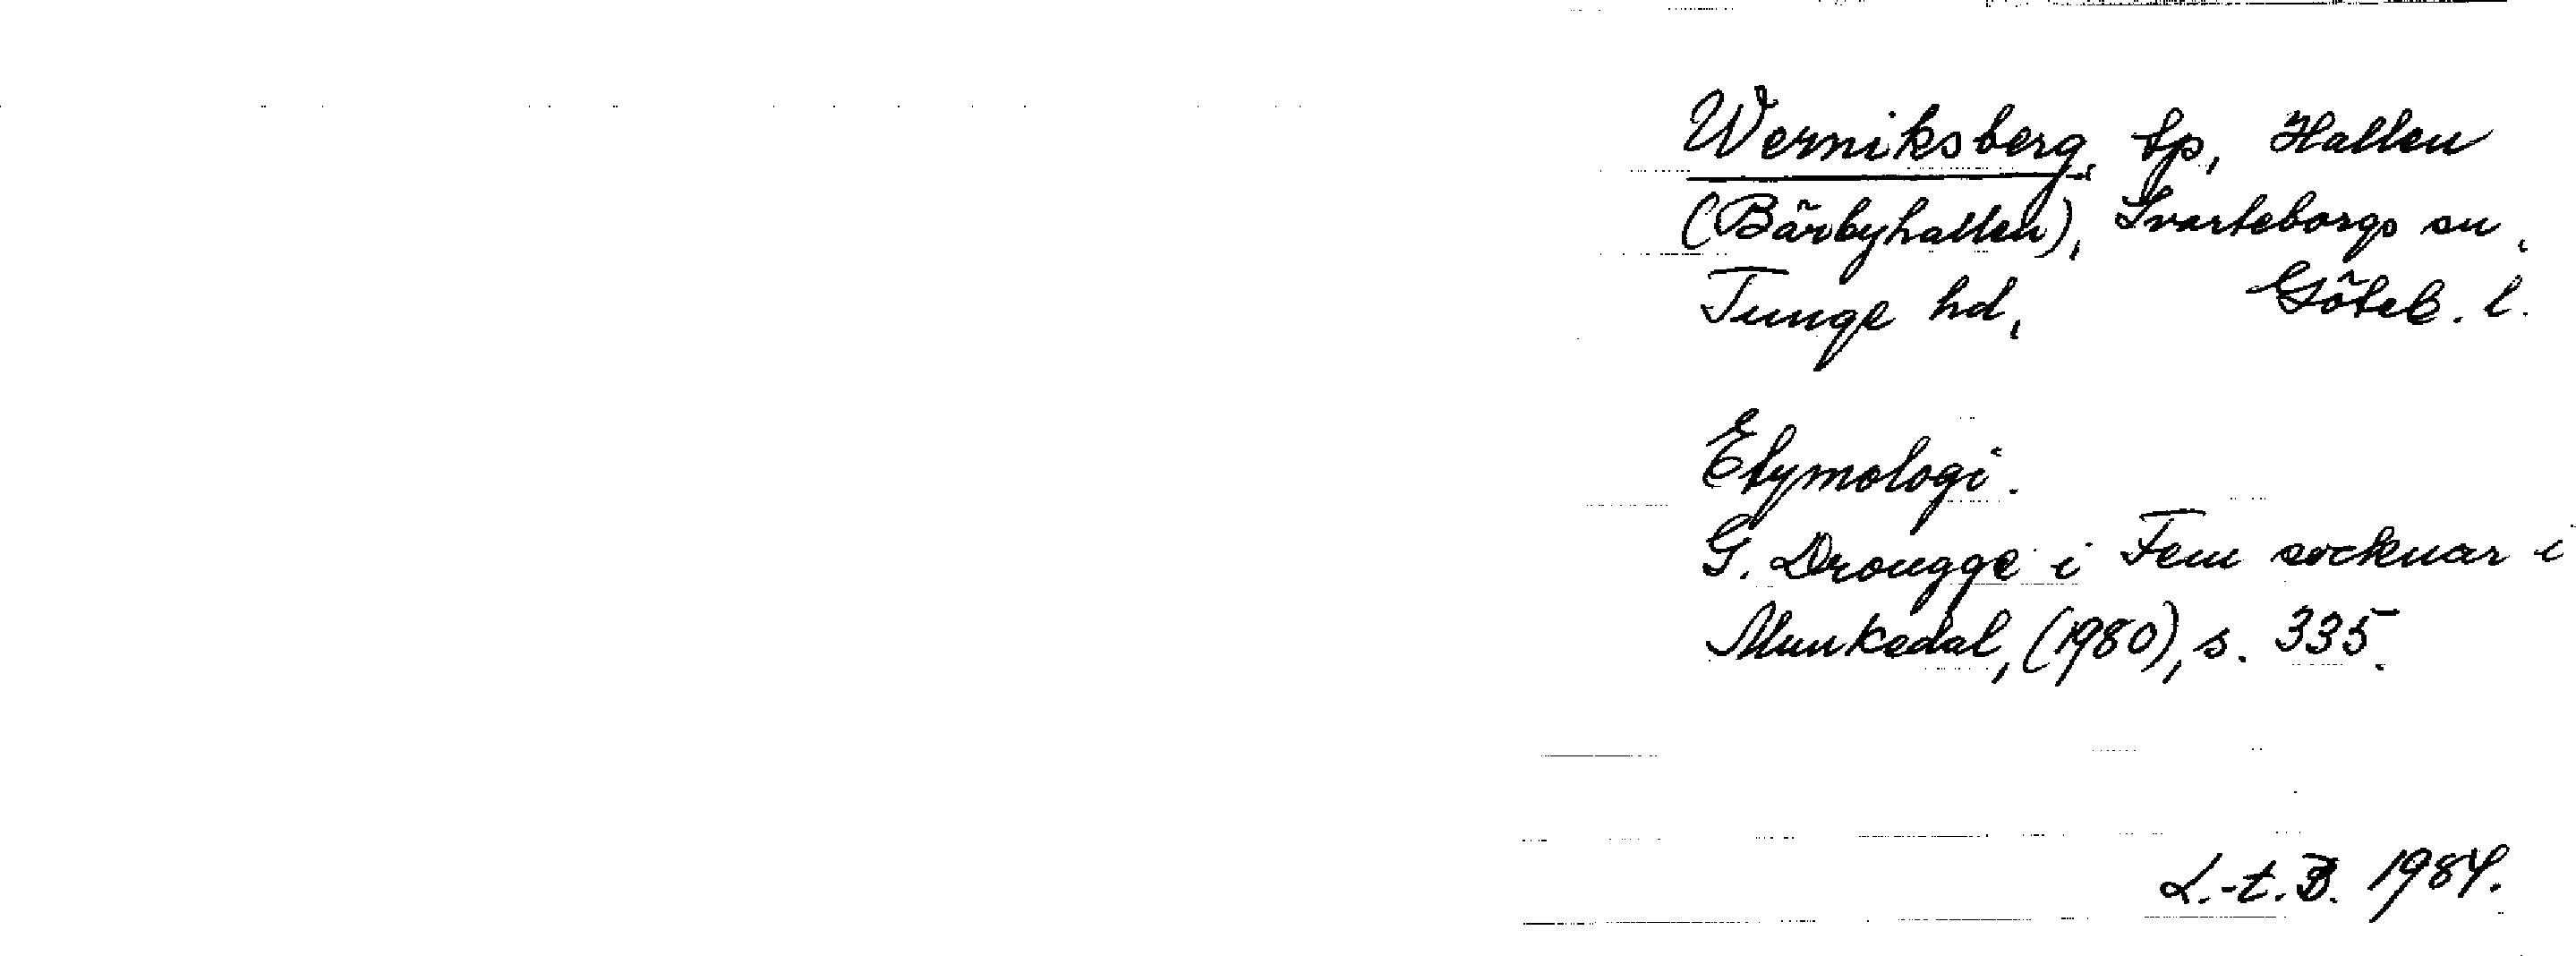 Werniksberg, tp, Hallen
(Bärbyhallen), Svarteborgs sn,
Tunge hd, Göteb. l.
Etymologi.
G. Drougge i Fem socknar i
Munkedal, (1980), s. 335.
L.-t. B. 1984.